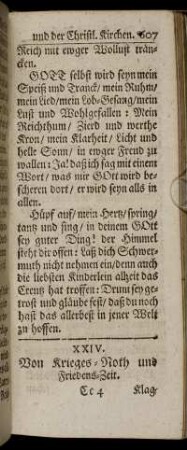 und der Christl. Kirchen. 607
Reich mit ewger Wollust trän-
cken.
GOTT selbst wird seyn mein
Speiß und Tranck/ mein Ruhm/
mein Lied/ mein Lob-Gesang/ mein
Lust und Wohlgefallen: Mein
Reichthum/ Zierd und werthe
Kron/ mein Klarheit/ Licht und
helle Sonn/ in ewger Freud zu
wallen: Ja! daß ich sag mit einem
Wort/ was mir GOtt wird be-
scheren dort/ er wird seyn alls in
allen.
Hüpf auf/ mein Hertz/ spring/
tantz und sing/ in deinem GOtt
sey guter Ding! der Himmel
steht dir offen: Laß dich Schwer-
muth nicht nehmen ein/ denn auch
die liebsten Kinderlein allzeit das
Creutz hat troffen: Drum sey ge-
trost und gläube fest/ daß du noch
hast das allerbest in jener Welt
zu hoffen.
XXIV.
Von Krieges-Noth und
Friedens-Zeit.
Cc 4 Klag